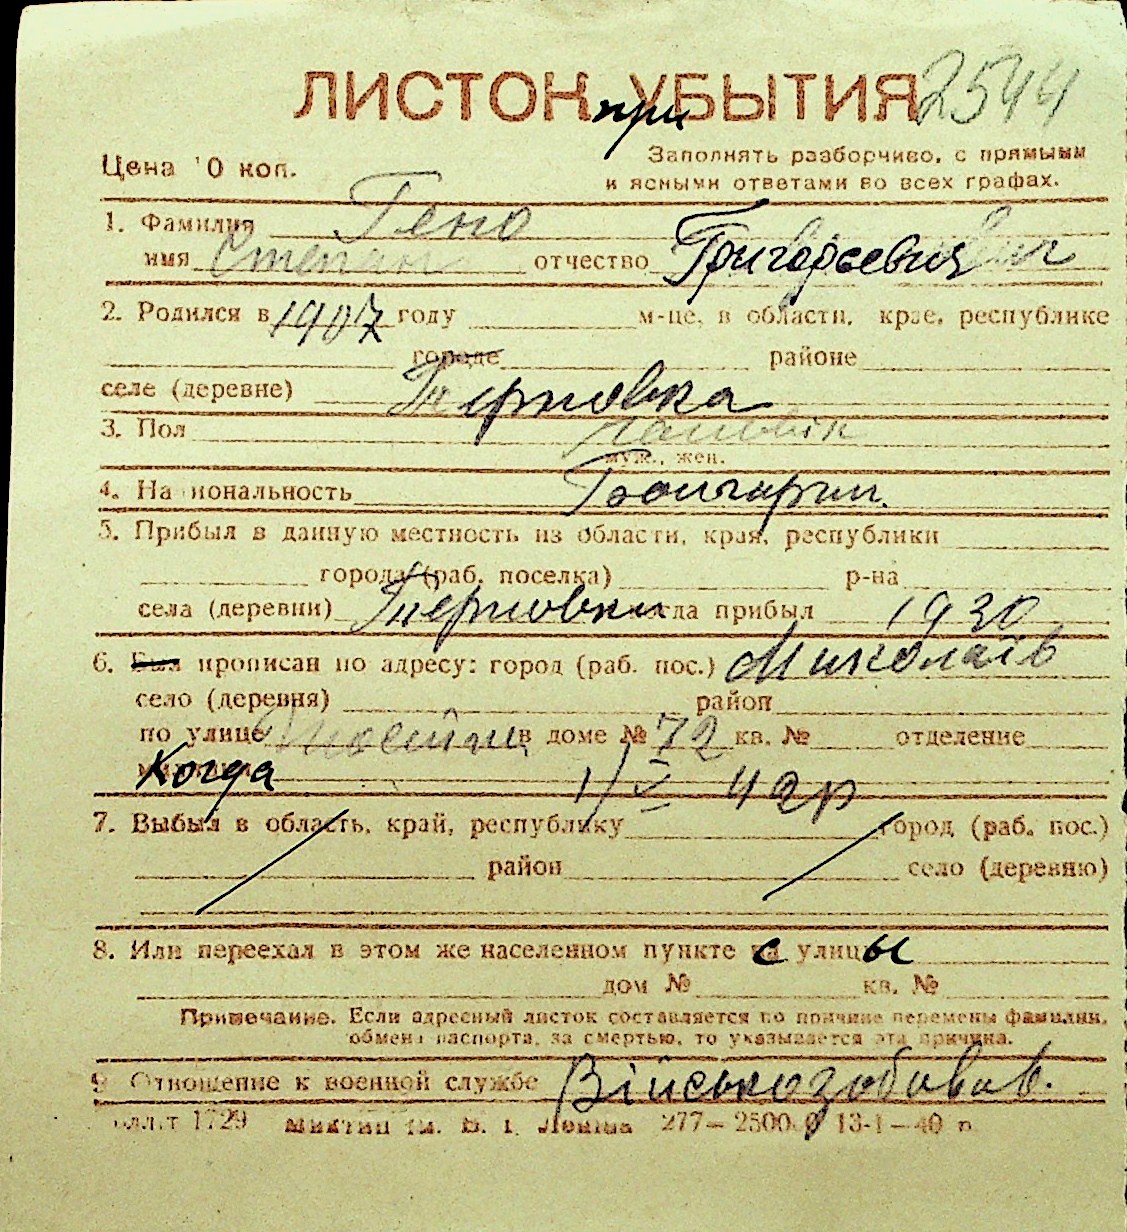 ЛИСТОК при УБЫТИЯ 2544
Цена 10 коп.
Заполнять разборчиво, с прямыми
и ясными ответами во всех графах.
1. Фамилия Гено
имя Степан отчество Григорьевич
2. Родился в 1907 году м-це, в области, крае, республике
городе районе
селе (деревне) Терновка
3. Пол чоловік
муж., жен.
4. Национальность Болгарин.
5. Прибыл в данную местность из области, края, республики
города (раб. поселка) р-на
села (деревни) Терновки когда прибыл 1930
6. Был прописан по адресу: город (раб. пос.) Миколаїв
село (деревня) район
по улице в доме № 72 кв. № отделение
Когда 1/V 42р
7. Выбыл в область, край, республику город (раб. пос.)
район село (деревню)
8. Или переехал в этом же населенном пункте с улицы
дом № кв. №
Примечание. Если адресный листок составляется по причине перемены фамилии,
обмена паспорта, за смертью, то указывается эта причина.
9. Отношение к военной службе Військозобовяз.
1729 им. В. І. Леніна 277—2500 13-1—40 г.